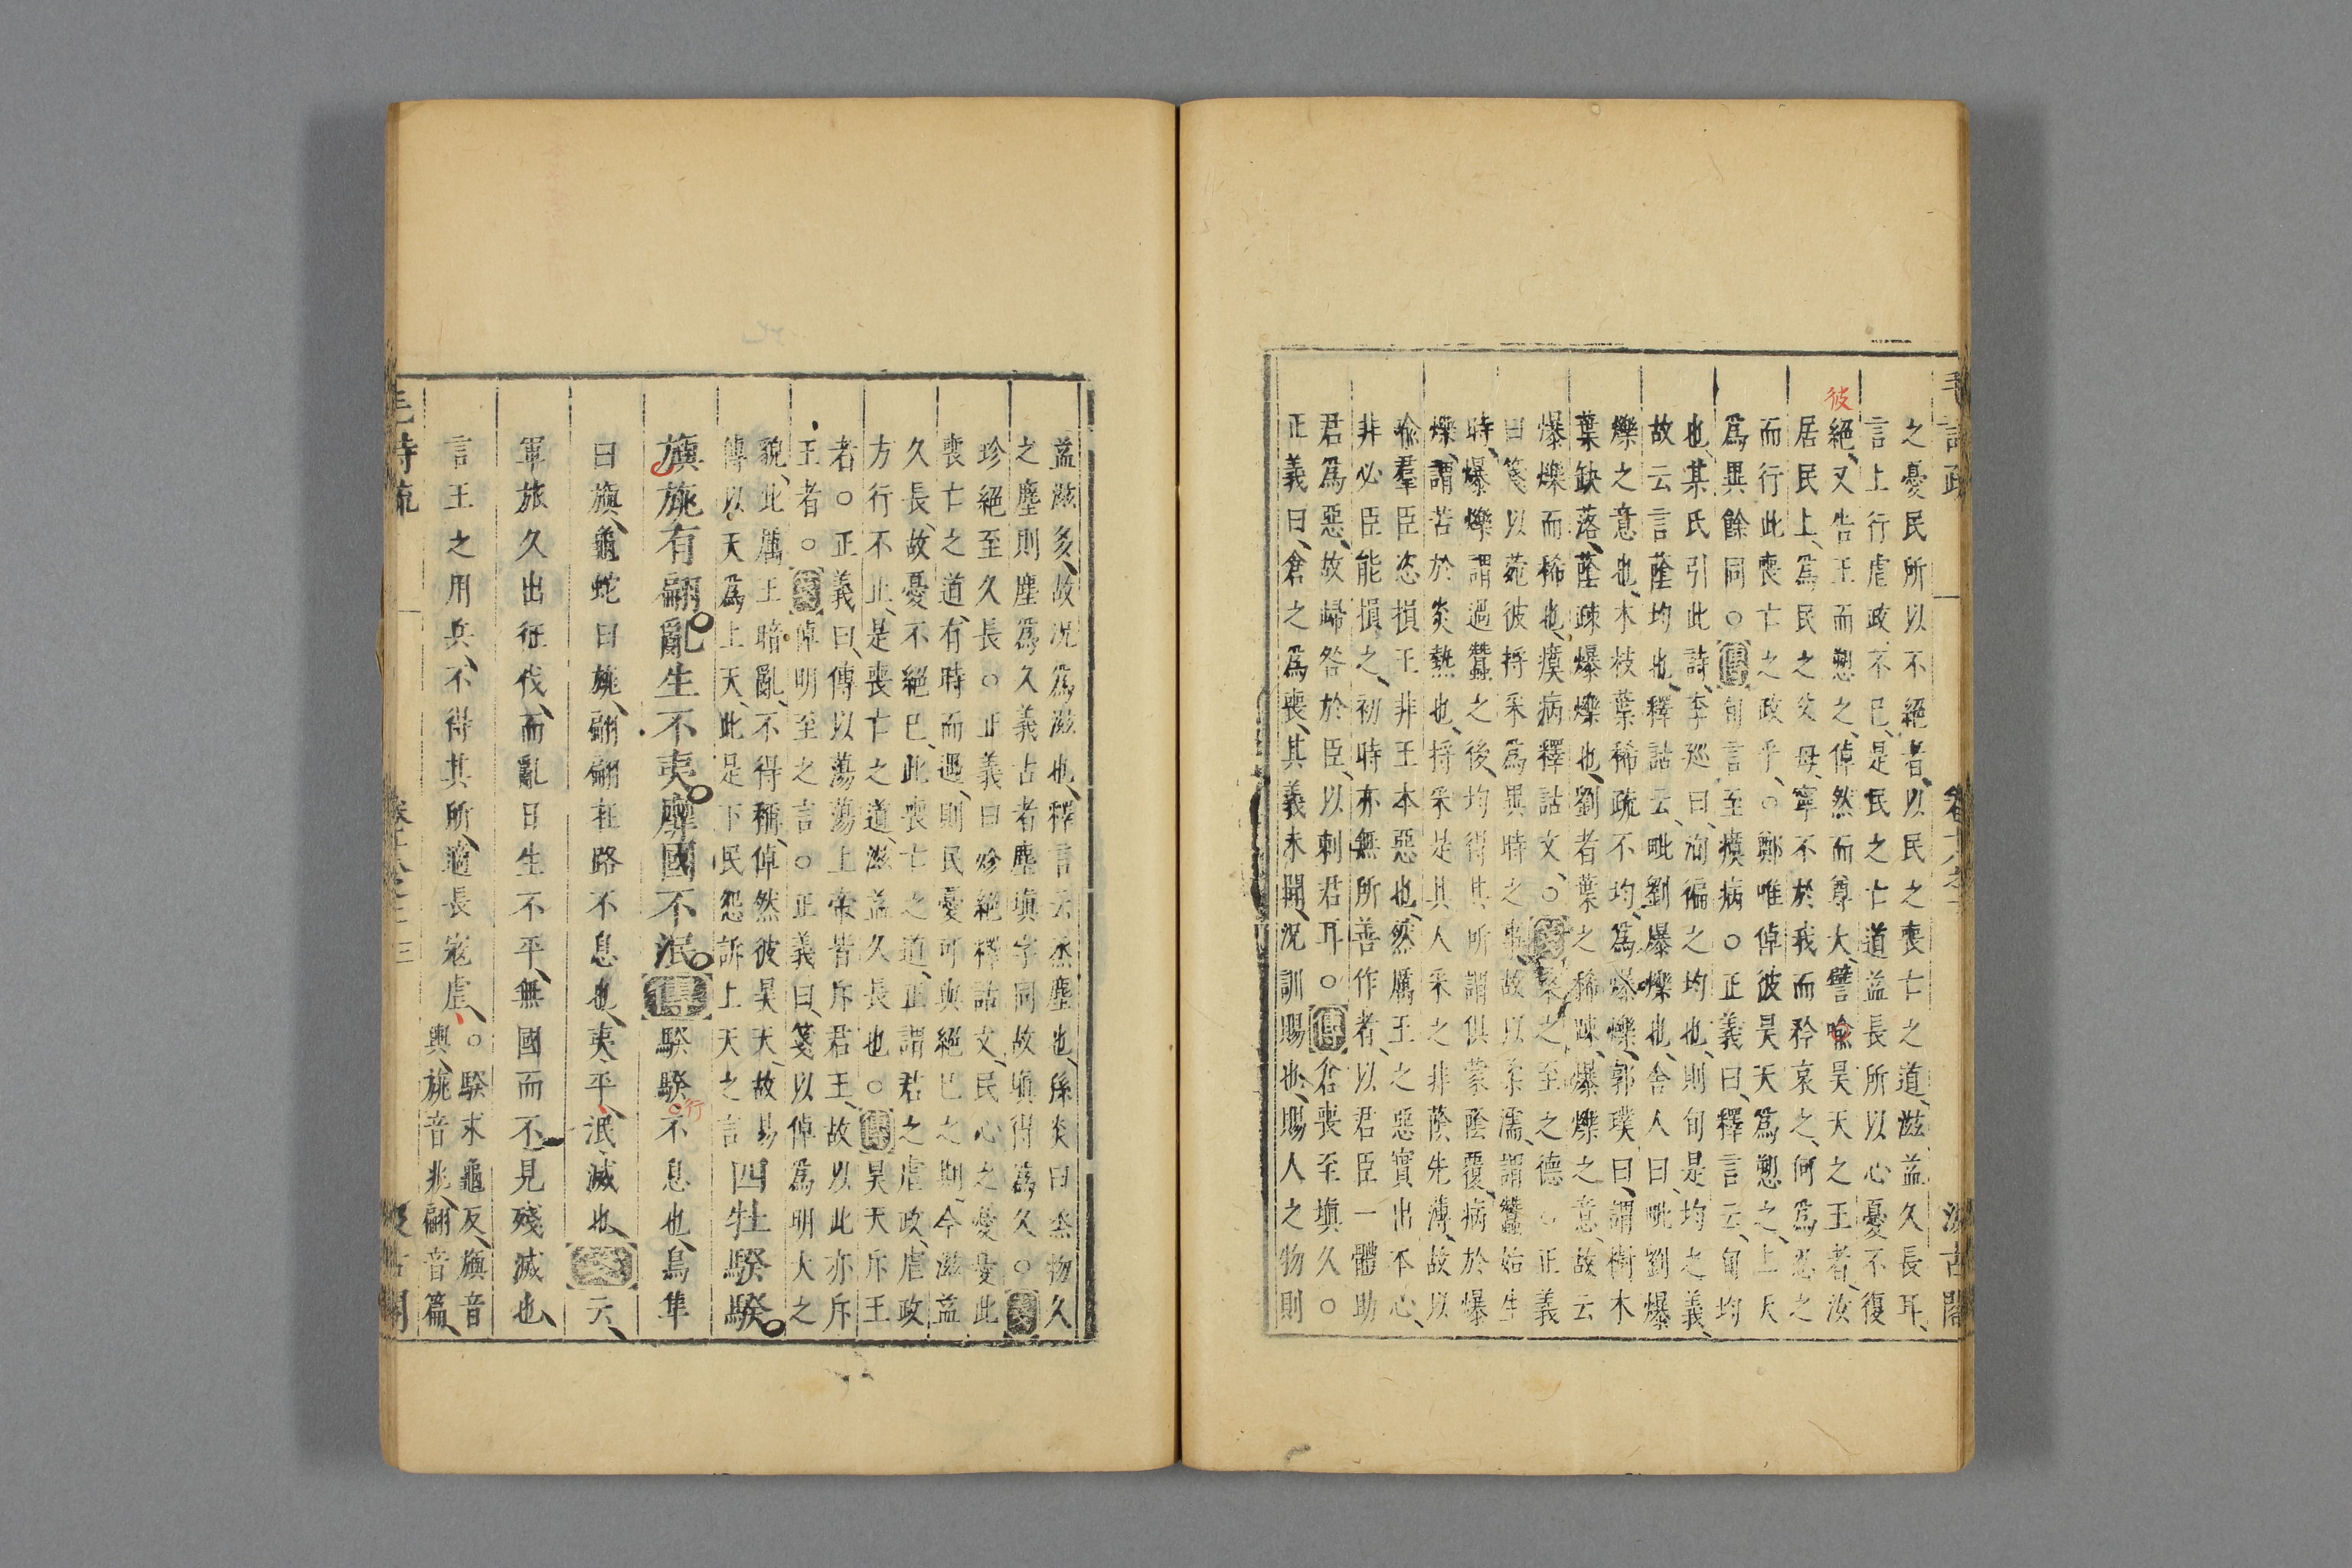 之憂民所以不絕者以民之喪亡之道滋益久長耳
言上行虐政不已是民之亡道益長所以心憂不復
彼
絕又告王而愬之倬然而尊大譬喻昊天之王者汝
居民上爲民之父母寧不於我而矜哀之何爲忍之
而行此喪亡之政乎○鄭唯倬彼昊天爲愬之上天
爲異餘同○傳旬言至瘼病○正義曰釋言云旬均
也某氏引此詩李巡曰洵徧之均也則旬是均之義
故云言蔭均也釋詁云毗劉爆爍也舍人曰毗劉爆
爍之意也木枝葉稀疏不均爲爆爍郭璞曰謂樹木
葉缺落蔭疎爆爍也劉者葉之稀疎爆爍之意故云
爆爍而稀也瘼病釋詁文○箋桑之至之德○正義
曰箋以菀彼捋采爲異時之事故以柔濡謂蠶始生
時爆爍謂過蠶之後均得其所謂俱蒙蔭覆病於爆
爍謂苦於炎熱也捋采是其人采之非蔭先薄故以
喻羣臣恣損王非王本惡也然厲王之惡實出本心
非必臣能損之初時亦無所善作者以君臣一體助
君爲惡故歸咎於臣以刺君耳○傳倉喪至填久○
正義曰倉之爲喪其義未聞況訓賜也賜人之物則
毛詩疏
卷十八之二
汲古閣
益滋多故況爲滋也釋言云烝塵也孫炎曰烝物久
之塵則塵爲久義古者塵填字同故填得爲久○箋
殄絕至久長○正義曰殄絕釋詁文民心之憂憂此
喪亡之道有時而過則民憂可與絕已之期今滋益
久長故憂不絕已此喪亡之道正謂君之虐政虐政
方行不止是喪亡之道滋益久長也○傳昊天斥王
者○正義曰傳以蕩蕩上帝皆斥君王故以此亦斥
王者○箋倬明至之言○正義曰箋以倬爲明大之
貌此厲王暗亂不得稱倬然彼昊天故易
傳以天爲上天此是下民怨訴上天之言四牡騤騤
旟旐有翩亂生不夷靡國不泯傳騤騤不息也鳥隼
行
曰旟龜蛇曰旐翩翩在路不息也夷平泯滅也箋云
軍旅久出征伐而亂日生不平無國而不見殘滅也
言王之用兵不得其所適長寇虐○騤求龜反旟音
輿旐音兆翩音篇
毛詩疏
卷十八之二
三
汲古閣